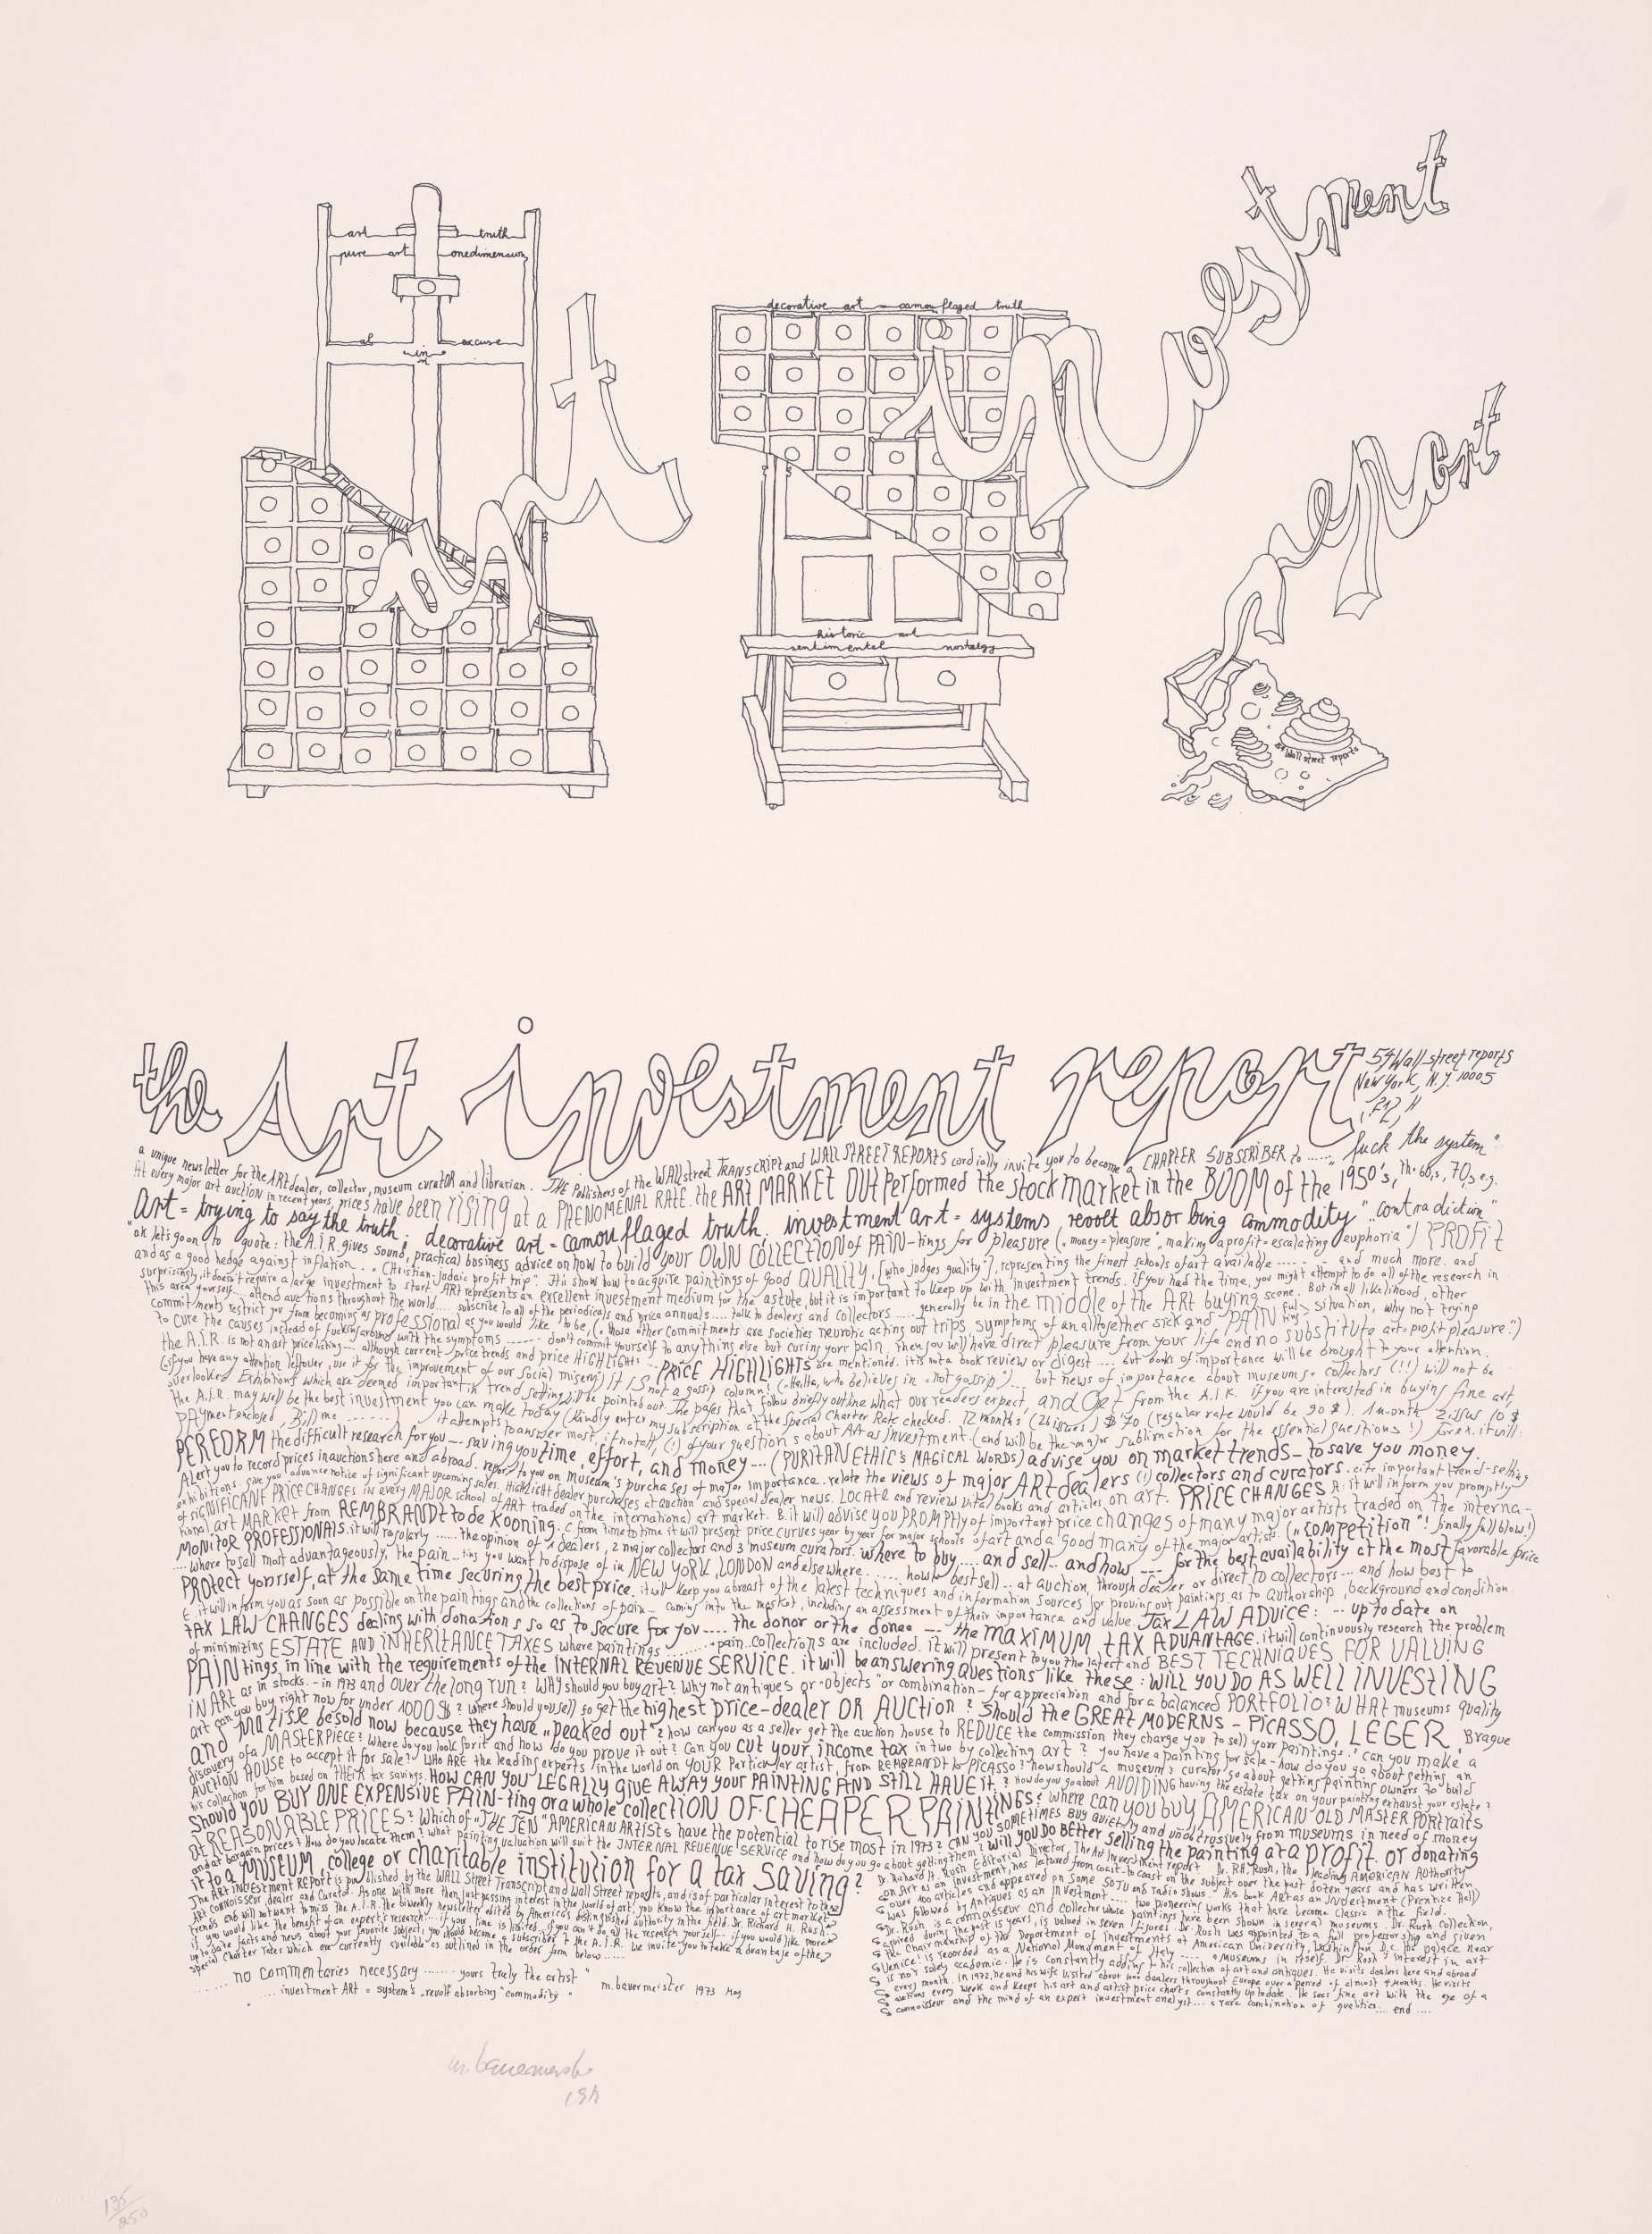 art truth
pure art onedimension
excuse
in
art
decorative art camouflaged truth
investment
historic art
sentimental nostalgy
report
54 Wall street reports
the Art investment report
54 Wall street reports
New York, N.Y. 10005
"fuck the system"
a unique newsletter for the ART dealer, collector, museum curatOR and librarian. THE Publishers of the WALL street TRANSCRIPT and WALL STREET REPORTS cordially invite you to become a CHARTER SUBSCRIBER to ......
At every major art auction in recent years, prices have been rising at a PHENOMENAL RATE. the ART MARKET OUTperformed the stock market in the BOOM of the 1950's, the 60s, 70s e.g.
Art = trying to say the truth; decorative art = camouflaged truth. investment art = systems, revolt absorbing commodity" "contradiction"
"ok let's go on to quote: the A.I.R. gives sound, practical business advice on how to build your OWN COLLECTION of PAIN-tings for pleasure ("money = pleasure", making a profit = escalating euphoria") PROFIT
and as a good hedge against inflation... "Christian-Judaic profit trip". It's show how to acquire paintings of good QUALITY, [who judges quality?], representing the finest schools of art available ----- and much more. and
surprisingly, it doesn't require a large investment to start. ART represents an excellent investment medium for the astute, but it is important to keep up with investment trends. if you had the time, you might attempt to do all of the research in
this area yourself.... attend auctions throughout the world.... subscribe to all of the periodicals and price annuals.... talk to dealers and collectors ...... generally be in the middle of the ART buying scene. But in all likelihood, other
commitments restrict you from becoming as professional as you would like to be, (those other commitments are societies neurotic acting out trips symptoms of an alltogether sick and PAIN ful situation, why not trying
to cure the causes instead of fucking around with the symptoms ------ don't commit yourself to anything else but curing your pain. Then you will have direct pleasure from your life and no substitute art-profit pleasure.")
the A.I.R. is not an art price listing -- although current price trends and price HIGHLIGHTS... PRICE HIGHLIGHTS are mentioned. it is not a book review or digest .... but books of importance will be brought to your attention.
(if you have any attention leftover, use it for the improvement of our social misery) it is not a gossip column! ... but news of importance about museums + collectors (!!!) will not be
overlooked. Exhibitions which are deemed important in trend setting will be pointed out. The pages that follow briefly outline what our readers expect, and get from the A.I.R. if you are interested in buying fine art,
the A.I.R. may well be the best investment you can make today (kindly enter my subscription at the special Charter Rate checked. 12 months (26 issues) $ 70 (regular rate would be 90 $).
payment enclosed, Bill me ....... it attempts to answer most, if not all, (!) of your questions about Art as Investment. (and will be the major sublimation for the essential questions!)
PERFORM the difficult research for you -- saving you time, effort, and money .... (PURITAN ETHIC's MAGICAL WORDS) advise you on market trends - to save you money.
Alert you to record prices in auctions here and abroad. report to you on museum's purchases of major importance. relate the views of major ART dealers (!) collectors and curators. cite important trend-setting
exhibitions. give you advance notice of significant upcoming sales. Highlight dealer purchases at auction and special dealer news. LOCATE and review vital books and articles on art. PRICE CHANGES A: it will inform you promptly
of SIGNIFICANT PRICE CHANGES in every MAJOR school of ART traded on the international art market. B. it will advise you PROMPTly of important price changes of many major artists traded on the interna-
tional art MARKET from REMBRANDT to de Kooning. C. from time to time it will present price curves year by year for major schools of art and a good many of the major artists. ("competition"! finally full blow!)
MONITOR PROFESSIONALS. it will regularly ...... the opinion of 7 dealers, 2 major collectors and 3 museum curators. where to buy .... and sell -- and how --- for the best availability at the most favorable price
.... Where to sell most advantageously, the pain ... tings you want to dispose of in NEW YORK, LONDON and elsewhere ...... how to best sell -- at auction, through dealer or direct to collectors -- and how best to
PROtect yourself, at the same time securing the best price. it will keep you abreast of the latest techniques and information sources for proving out paintings as to Authorship, background and condition.
E. it will inform you as soon as possible on the paintings and the collections of pain... coming into the market, including an assessment of their importance and value. Tax LAW ADVICE: -- up to date on
tAX LAW CHANGES dealing with donations so as to secure for you .... the donor or the donee --- the MAXIMUM TAX ADVANTAGE. it will continuously research the problem
of minimizing ESTATE AND INHERITANCE TAXES where paintings ....... pain.. collections are included. it will present to you the latest and BEST TECHNIQUES FOR VALUING
PAINtings, in line with the requirements of the INTERNAL REVENUE SERVICE. it will be answering questions like these: WILL YOU DO AS WELL INVESTING
IN ART as in stocks -- in 1973 and over the long run? WHY should you buy art? Why not antiques or "objects" or combination - for appreciation and for a balanced PORTFOLIO? WHAT museums quality
art can you buy right now for under 1000 $? Where should you sell so get the highest price - dealer OR AUCTION? Should the GREAT MODERNS - PICASSO, LEGER, Braque
and Matisse be sold now because they have "peaked out"? how can you as a seller get the auction house to REDUCE the commission they charge you to sell your paintings? can you make a
discovery of a MASTERPIECE? Where do you look for it and how do you prove it out? Can you cut your income tax in two by collecting art? you have a painting for sale - how do you go about getting an
AUCTION HOUSE to accept it for sale? WHO ARE the leading experts in the world on YOUR Particular artist, from REMBRANDT to PICASSO? how should a museum curator go about getting painting owners to build
his collection for him based on THEIR tax savings. HOW CAN YOU LEGALLY GIVE AWAY your PAINTING AND STILL HAVE IT? How do you go about AVOIDING having the estate tax on your painting exhaust your estate?
Should you BUY ONE EXPENSIVE PAIN-ting or a whole collection OF CHEAPER PAINtings? where can you buy AMERICAN OLD MASTER PORTRAITS
at REASONABLE PRICES? Which of "THE TEN" AMERICAN ARTISTS have the potential to rise most in 1973? CAN you SOMETIMES BUY quietly and unobtrusively from museums in need of money
and at bargain prices? How do you locate them? What painting valuation will suit the INTERNAL REVENUE SERVICE and how do you go about getting them? Will you DO BETTER selling the painting at a profit. or donating
it to a MUSEUM, college or charitable institution for a tax saving?
The ART INVESTMENT REPORT is published by the WALL Street Transcript and Wall Street reports, and is of particular interest to the
ART connoisseur, dealer and Curator. As one with more than just passing interest in the world of art, you know the importance of art market
trends and will not want to miss the A.I.R. the biweekly newsletter edited by America's distinguished authority in the field. Dr. Richard H. Rush.
if you would like the benefit of an expert's research.... if your time is limited... if you can't do all the research yourself... if you would like more
up to date facts and news about your favorite subject, you should become a subscriber to the A.I.R. we invite you to take advantage of the
special Charter rates which are currently available as outlined in the order form below.....
Dr. Richard H. Rush Editorial Director, The Art Investment report. Dr. R.H. Rush, the leading AMERICAN Authority
on Art as an investment, has lectured from coast-to-coast on the subject over the past dozen years and has written
over 100 articles and appeared on some 50 TV and radio shows. His book ART as an Investment (Prentice Hall)
was followed by Antiques as an Investment .... two pioneering works that have become classic in the field.
Dr. Rush is a connoisseur and collector whose paintings have been shown in several museums. Dr. Rush Collection,
aquired during the past 15 years, is valued in seven figures. Dr. Rush was appointed to a full professorship and given
the Chairmanship of the Department of Investments at American University, Washington D.C. his palace near
Venice! is recorded as a National Monument of Italy .... a museum in itself. Dr. Rush's interest in art
is not soley academic. He is constantly adding to his collection of art and antiques. He visits dealers here and abroad
every month. in 1972, he and his wife visited about 1000 dealers throughout Europe over a period of almost 4 months. He visits
auctions every week and keeps his art and artist price charts constantly up to date. He sees fine art with the eye of a
connoisseur and the mind of an expert investment analyst... a rare combination of qualities.... end ....
... no commentaries necessary ....... yours truly the artist" m. bauermeister 1973 May
.... investment ART = system's "revolt absorbing" commodity"
m. bauermeister
135/250